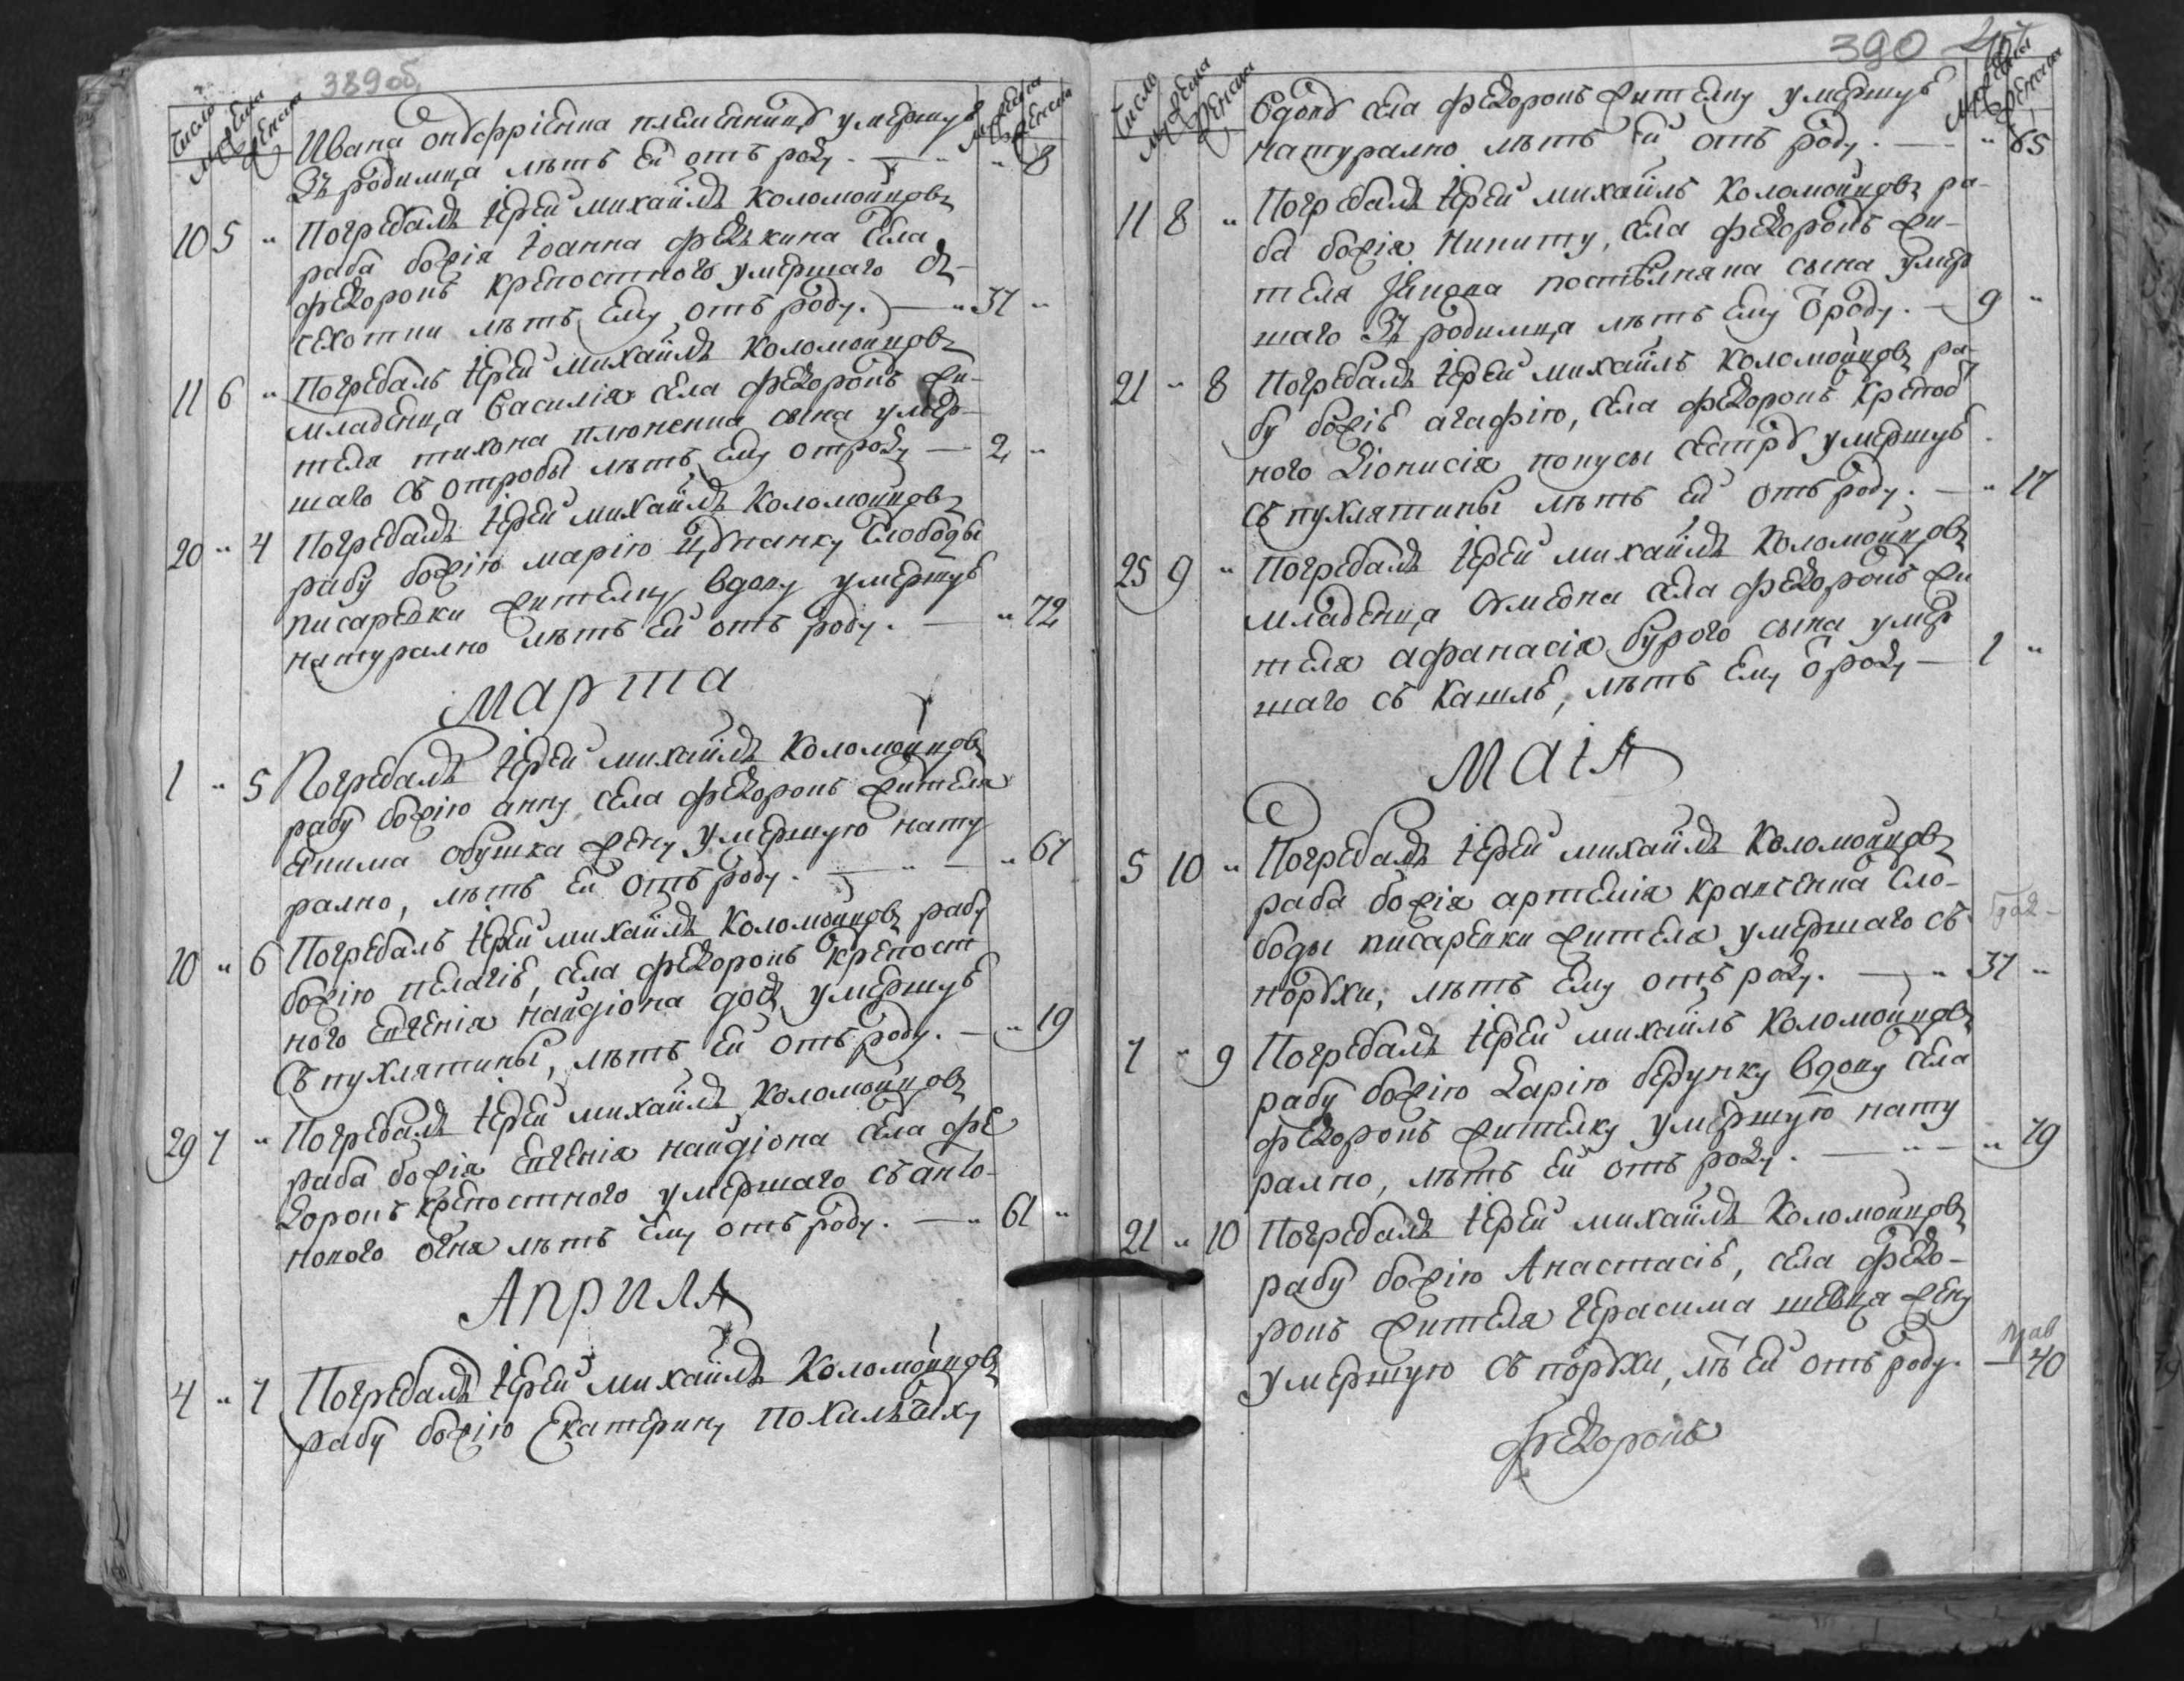 389 об
Число
Мужеска
Женска
Мужеска
Женска
Ивана онофріенка племенницу умершую
зъ родимца лѣтъ ей отъ роду. — " " 8
10 5 " Погребалъ іерей михаилъ Коломойцовъ
раба божія Іоанна федькина села
федоровъ крепостного умершаго
сухотни лѣтъ ему отъ роду. — " 37 "
11 6 " Погребалъ іерей михаилъ Коломойцовъ
младенца василія села федоровъ жи-
теля тихона сына умер-
шаго съ отробы лѣтъ ему отроду — 2 "
20 " 4 Погребалъ іерей михаилъ Коломойцовъ
рабу божію марію слободы
писаревки жителку вдову умершую
натурално лѣтъ ей отъ роду. — " 72
Марта
1 " 5 Погребалъ іерей михаилъ Коломойцовъ
рабу божію анну села федоровъ жителя
екима обушка жену умершую нату
рално, лѣтъ ей отъ роду. — " — " 67
10 " 6 Погребалъ іерей михаилъ Коломойцовъ рабу
божію пелагію, села федоровъ крепост
ного евгенія найдіона дочь умершую
съ пухлятины, лѣтъ ей отъ роду. — " 19
29 7 " Погребалъ іерей михаилъ Коломойцовъ
раба божія евгенія найдіона села фе
доровъ крепостного умершаго съ анто-
нового огня лѣтъ ему отъ роду. — " 61 "
Априля
4 " 7 Погребалъ іерей михаилъ Коломойцовъ
рабу божію Екатерину
390
Число
Мужеска
Женска
Мужеска
Женска
вдову села федоровъ жителку умершую
натурално лѣтъ ей отъ роду. — " 65
11 8 " Погребалъ іерей михаилъ Коломойцовъ ра-
ба божія никиту, села федоровъ жи-
теля сына умер
шаго зъ родимца лѣтъ ему ѿроду. — 9 "
21 " 8 Погребалъ іерей михаилъ Коломойцовъ ра-
бу божію агафію, села федоровъ крепос
ного діонисія сестру умершую
съ пухлятины лѣтъ ей отъ роду. — " 17
25 9 " Погребалъ іерей михаилъ Коломойцовъ
младенца симеона села федоровъ жи
теля афанасія бурого сына умер
шаго съ кашлю, лѣтъ ему ѿроду — 1 "
Маія
5 10 " Погребалъ іерей михаилъ Коломойцовъ
раба божія артемія сло-
боды писаревки жителя умершаго съ
порухи, лѣтъ ему отъ роду. — " 37 "
7 " 9 Погребалъ іерей михаилъ Коломойцовъ
рабу божію дарію вдову села
федоровъ жителку умершую нату
рално, лѣтъ ей отъ роду. — " — " 79
21 " 10 Погребалъ іерей михаилъ Коломойцовъ
рабу божію Анастасію, села федо-
ровъ жителя герасима шевца жену
умершую съ порухи, лѣ ей отъ роду. — 40
федоровъ